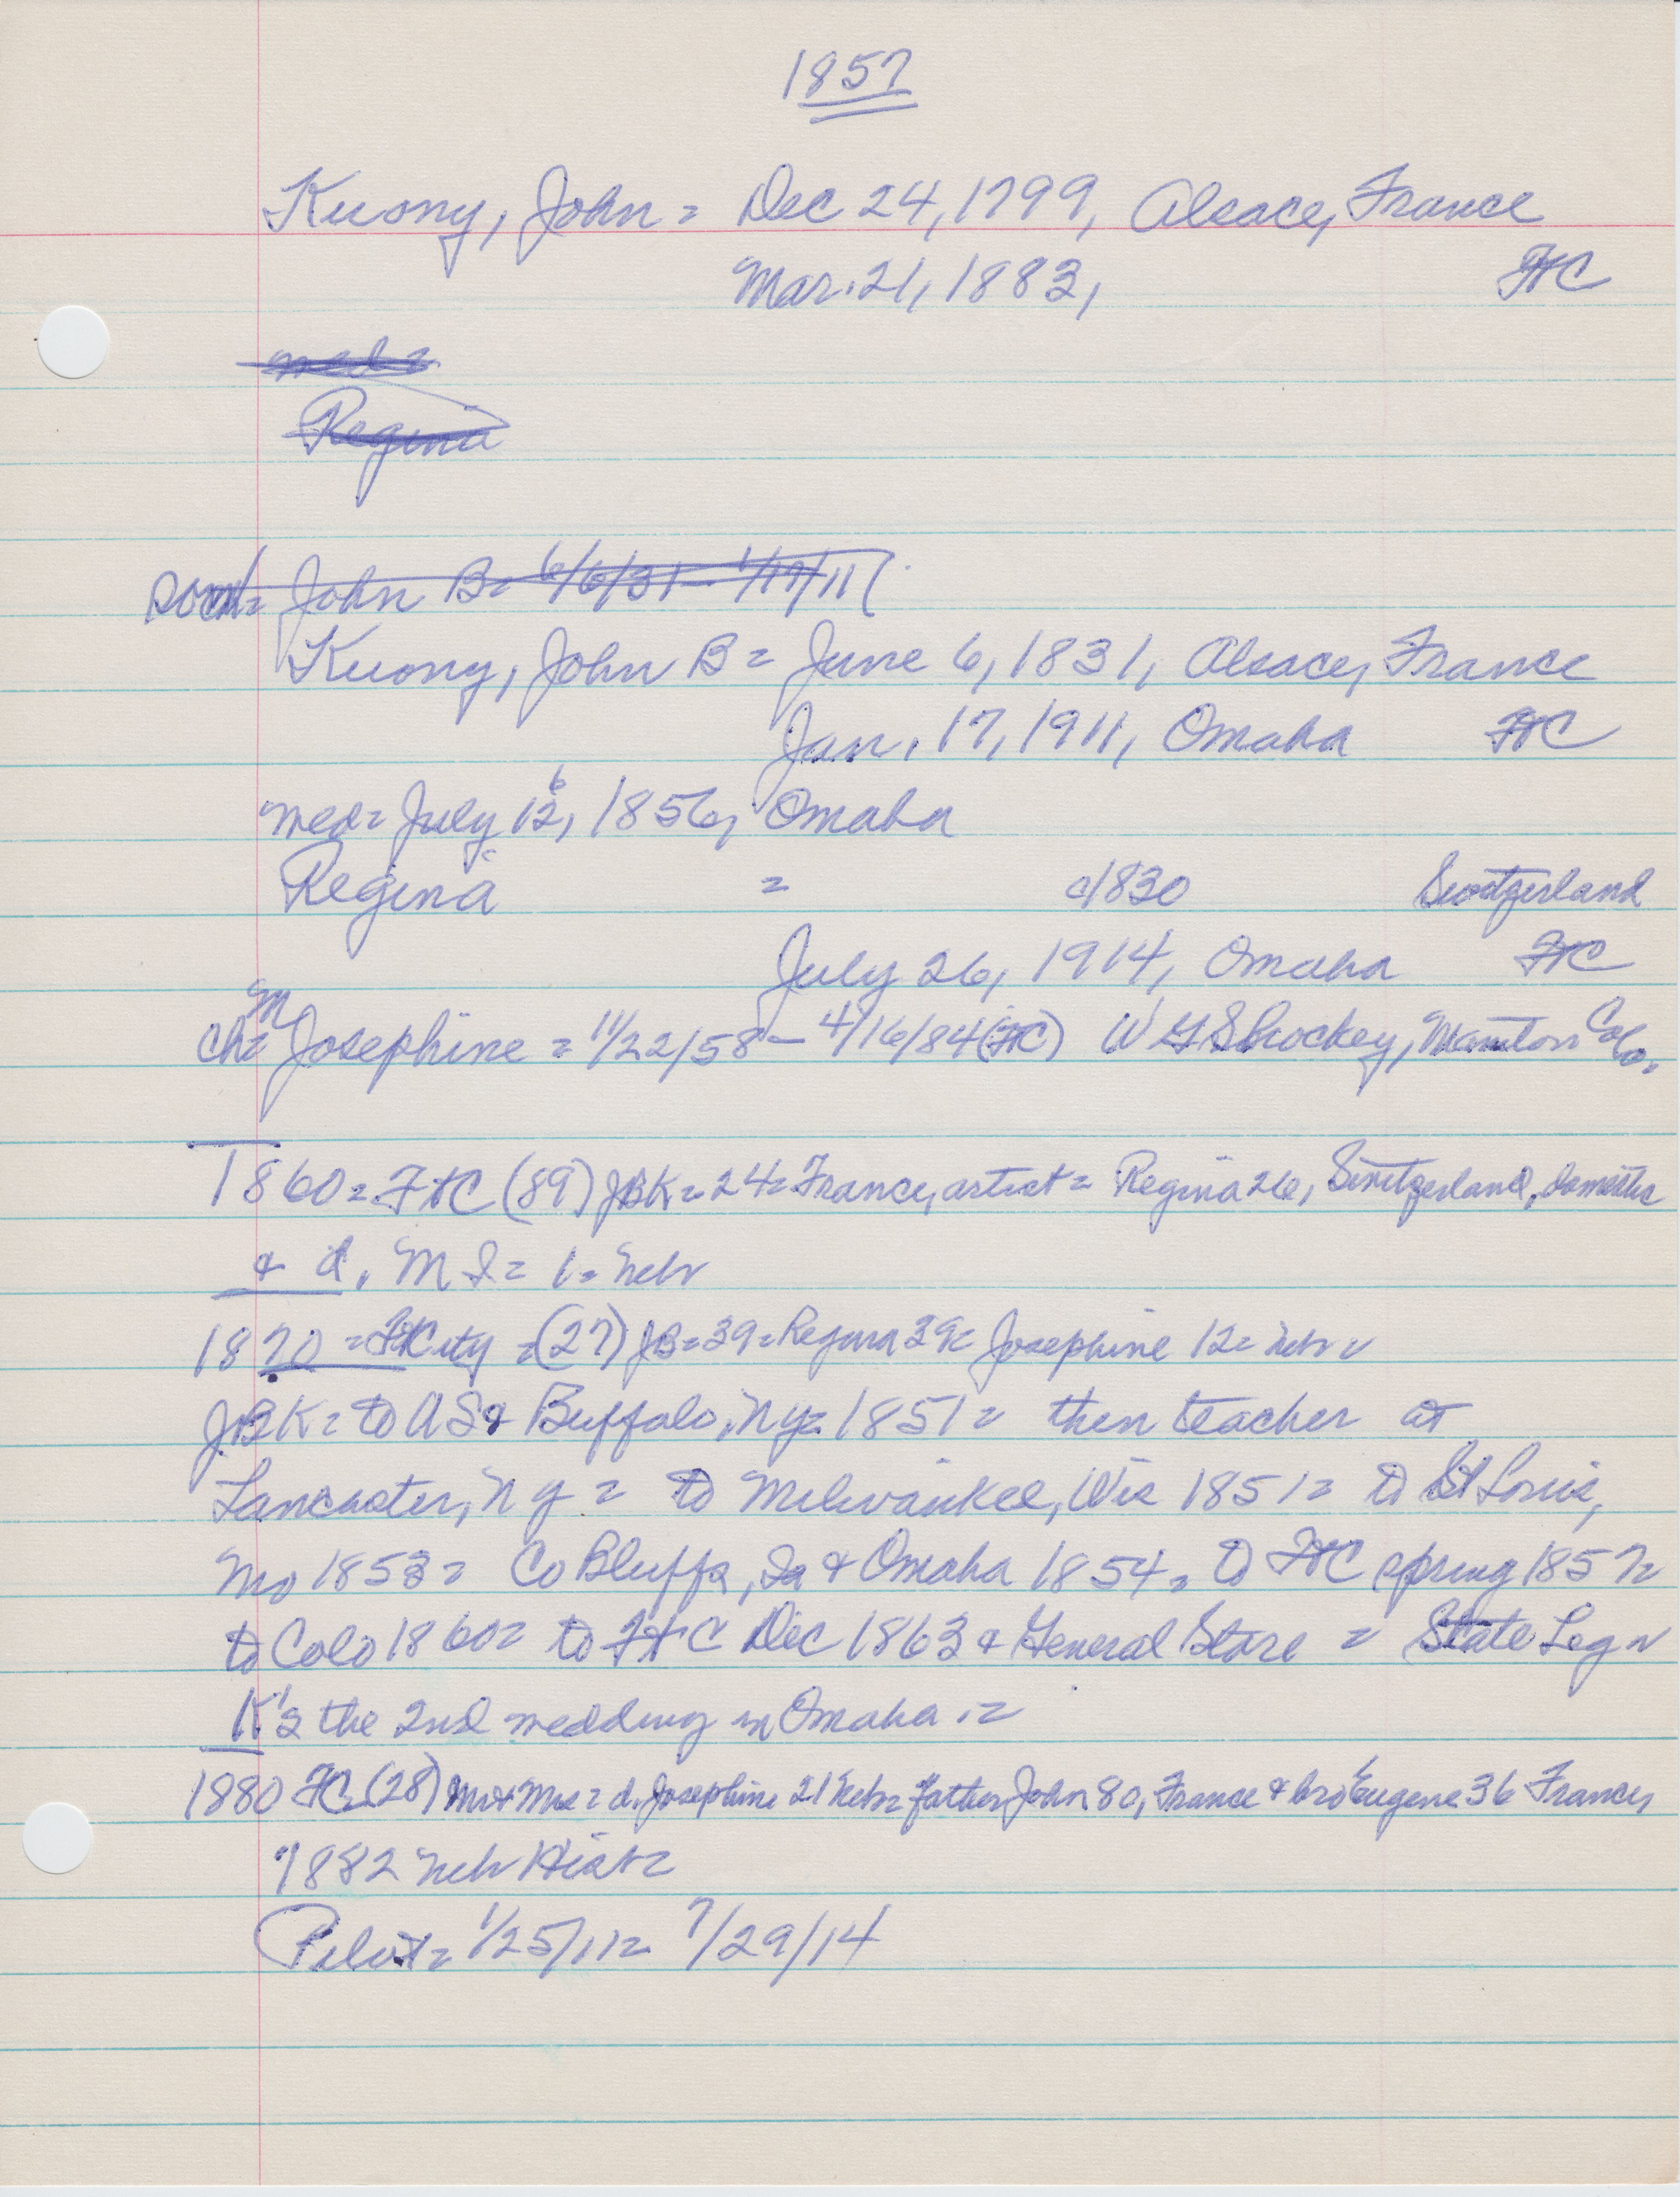 1857
Kuony, John = Dec 24, 1799, Alsace, France
Mar. 21, 1883, FtC
med =
Regina
John B = 6/6/31 - 1/17/11
Kuony, John B = June 6, 1831, Alsace, France
Jan. 17, 1911, Omaha FtC
med = July 12, 6 1856, Omaha
Regina = c/1830 Switzerland
July 26, 1914, Omaha FtC
ch = M Josephine = 11/22/58 - 4/16/84 (FtC) W G Shockey, Colo.
1860 = FtC (89) JBK = 24 = France, artist = Regina 26, Switzerland, domestic
& d. M I = 1 = Nebr
1870 = FtCity = (27) JB = 39 = Regina 39 = Josephine 12 = Nebr =
JBK = to US & Buffalo, Ny = 1851 = then teacher at
Lancaster, Ny = to Milwaukee, Wis 1851 = to St Louis,
Mo 1853 = Co Bluffs, Ia & Omaha 1854 = to FtC spring 1857 =
to Colo 1860 = to FtC Dec 1863 & General Store = State Leg =
K's the 2nd wedding in Omaha. =
1880 FC (28) Mr & Mrs = d. Josephine 21 Nebr = father John 80, France & bro Eugene 36 France,
1882 Neb Hist =
Pilot = 1/25/11 = 7/29/14